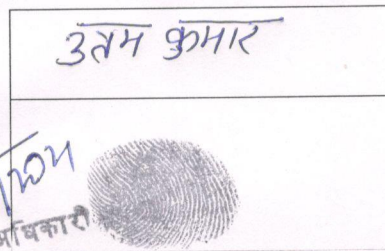 उतम कुमार
अधिकारी